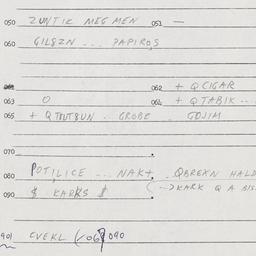 050 ZUNTIK MEGMEN 051 —
060 GILSZN ... PAPIROS
061 062 + QCIGAR
063 O 064 + QTABIK ..
065 + QTUTSUN .. GROBE . GDJIM
070
080 POTILICE ... NAK+ . QBREXN HALD
090 $ KARKS $ (--> KARK Q A BIS
901 CVEKL (/ 069 090